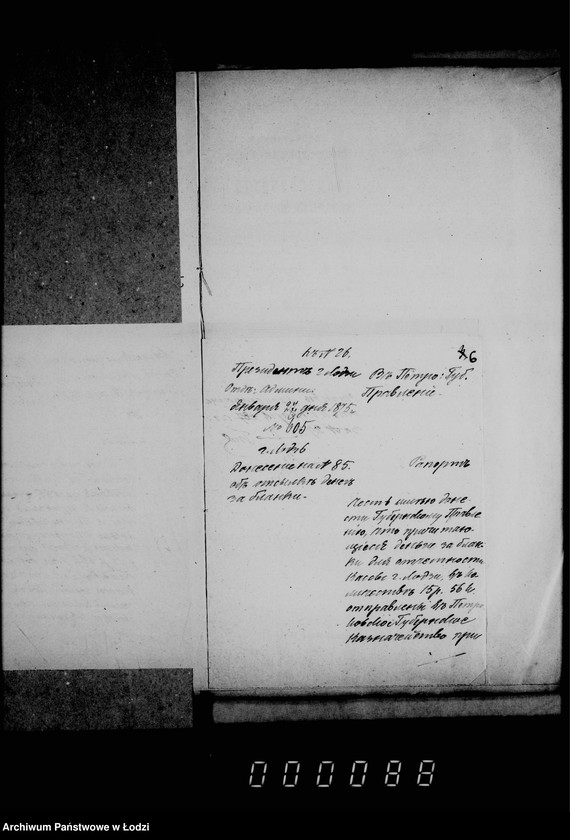 къ № 26.
6
Президентъ г. Лодзи
Отдѣ: Админи.
Января дня 1875
№ 605
г. Лодзь
Донесение на № 85.
объ отсылкѣ денегъ
за бланки.
Въ Петро: Губ.
Правленіе.
Рапортъ
Честь имѣю доне-
сти Губернскому Правле-
нію, что причитаю-
щіеся деньги за блан-
ки для отчетности
Кассы г. Лодзи, въ ко-
личествѣ 15 р. 56 к.
отправлены въ Петро-
ковское Губернское
Казначейство при
000088
Archiwum Państwowe w Łodzi